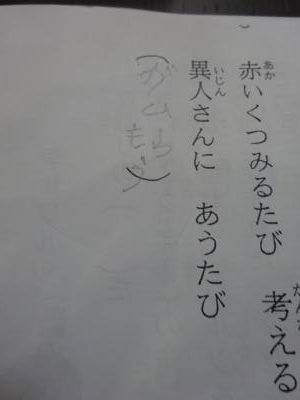 あか
赤いくつみるたび　考える
いじん
異人さんに　あうたび